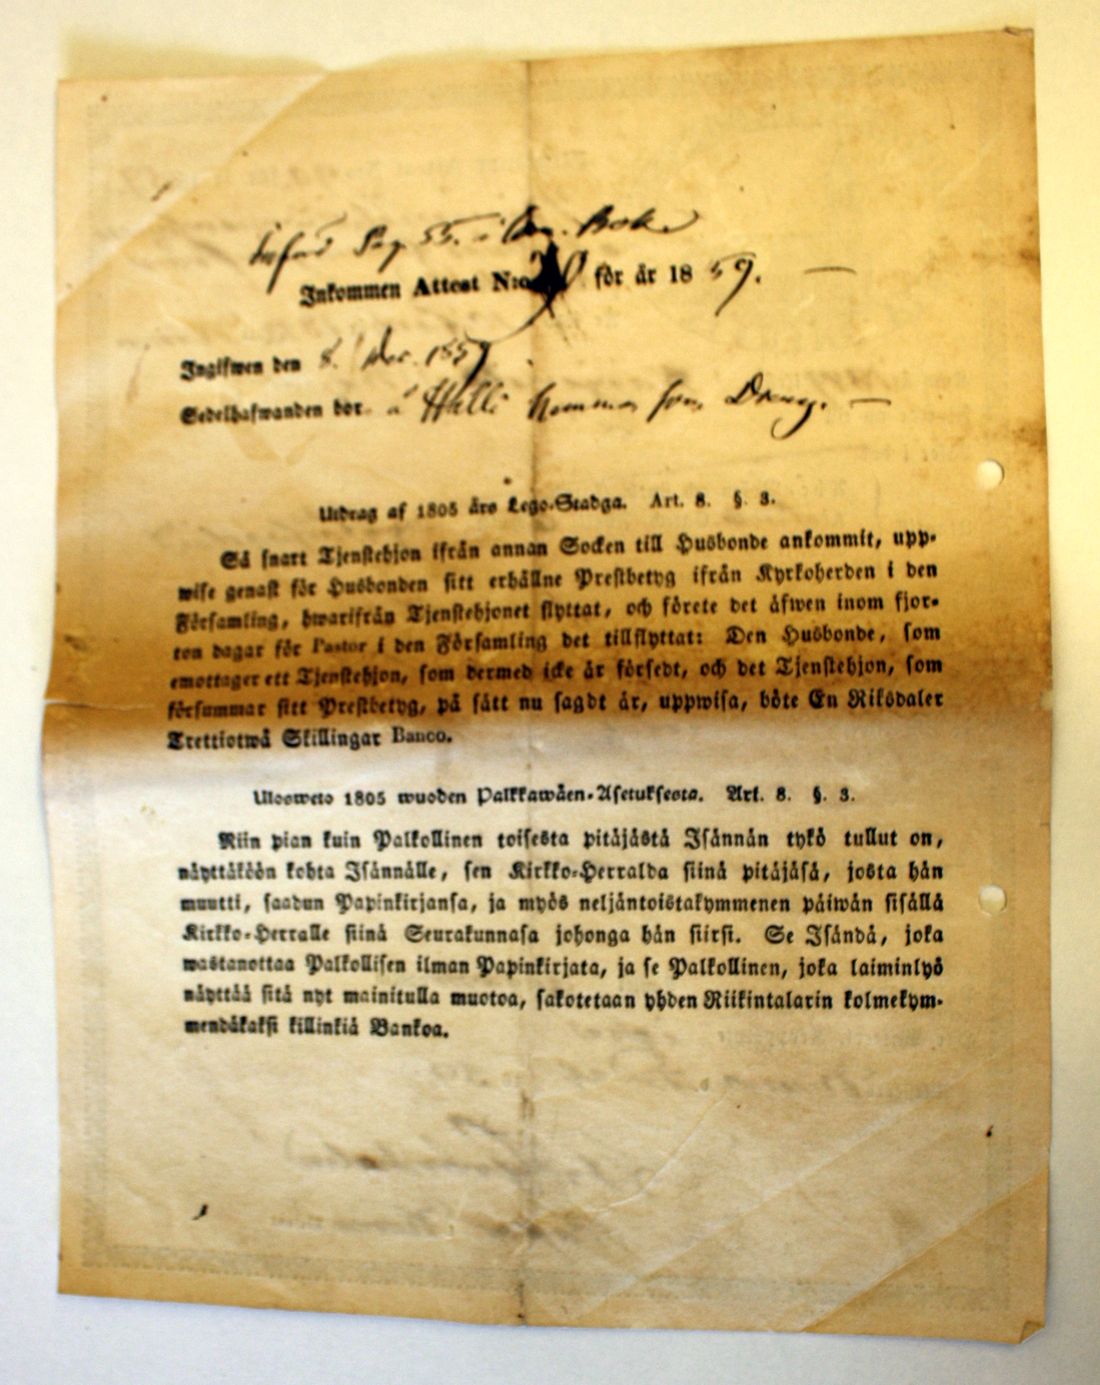 Införd Pag. 55. i Bok.
Inkommen Attest N:o för år 1859.
Ingifwen den 8. Dec. 1859.
Sedelhafwanden bor å Halli hemman som Dräng.
Utdrag af 1805 års Lego-Stadga. Art. 8. §. 3.
Så snart Tjenstehjon ifrån annan Socken till Husbonde ankommit, upp-
wise genast för Husbonden sitt erhållne Prestbetyg ifrån Kyrkoherden i den
Församling, hwarifrån Tjenstehjonet flyttat, och förete det äfwen inom fjor-
ton dagar för Pastor i den Församling det tillflyttat: Den Husbonde, som
emottager ett Tjenstehjon, som dermed icke är försedt, och det Tjenstehjon, som
försummar sitt Prestbetyg, på sätt nu sagdt är, uppwisa, böte En Riksdaler
Trettiotwå Skillingar Banco.
Ulosweto 1805 wuoden Palkkawäen-Asetuksesta. Art. 8. §. 3.
Niin pian kuin Palkollinen toisesta pitäjästä Isännän tykö tullut on,
näyttäköön kohta Isännälle, sen Kirkko-Herralda siinä pitäjäsä, josta hän
muutti, saadun Papinkirjansa, ja myös neljäntoistakymmenen päiwän sisällä
Kirkko-Herralle siinä Seurakunnasa johonga hän siirsi. Se Isändä, joka
wastanottaa Palkollisen ilman Papinkirjata, ja se Palkollinen, joka laiminlyö
näyttää sitä nyt mainitulla muotoa, sakotetaan yhden Riikintalarin kolmekym-
mendäkaksi killinkiä Bankoa.